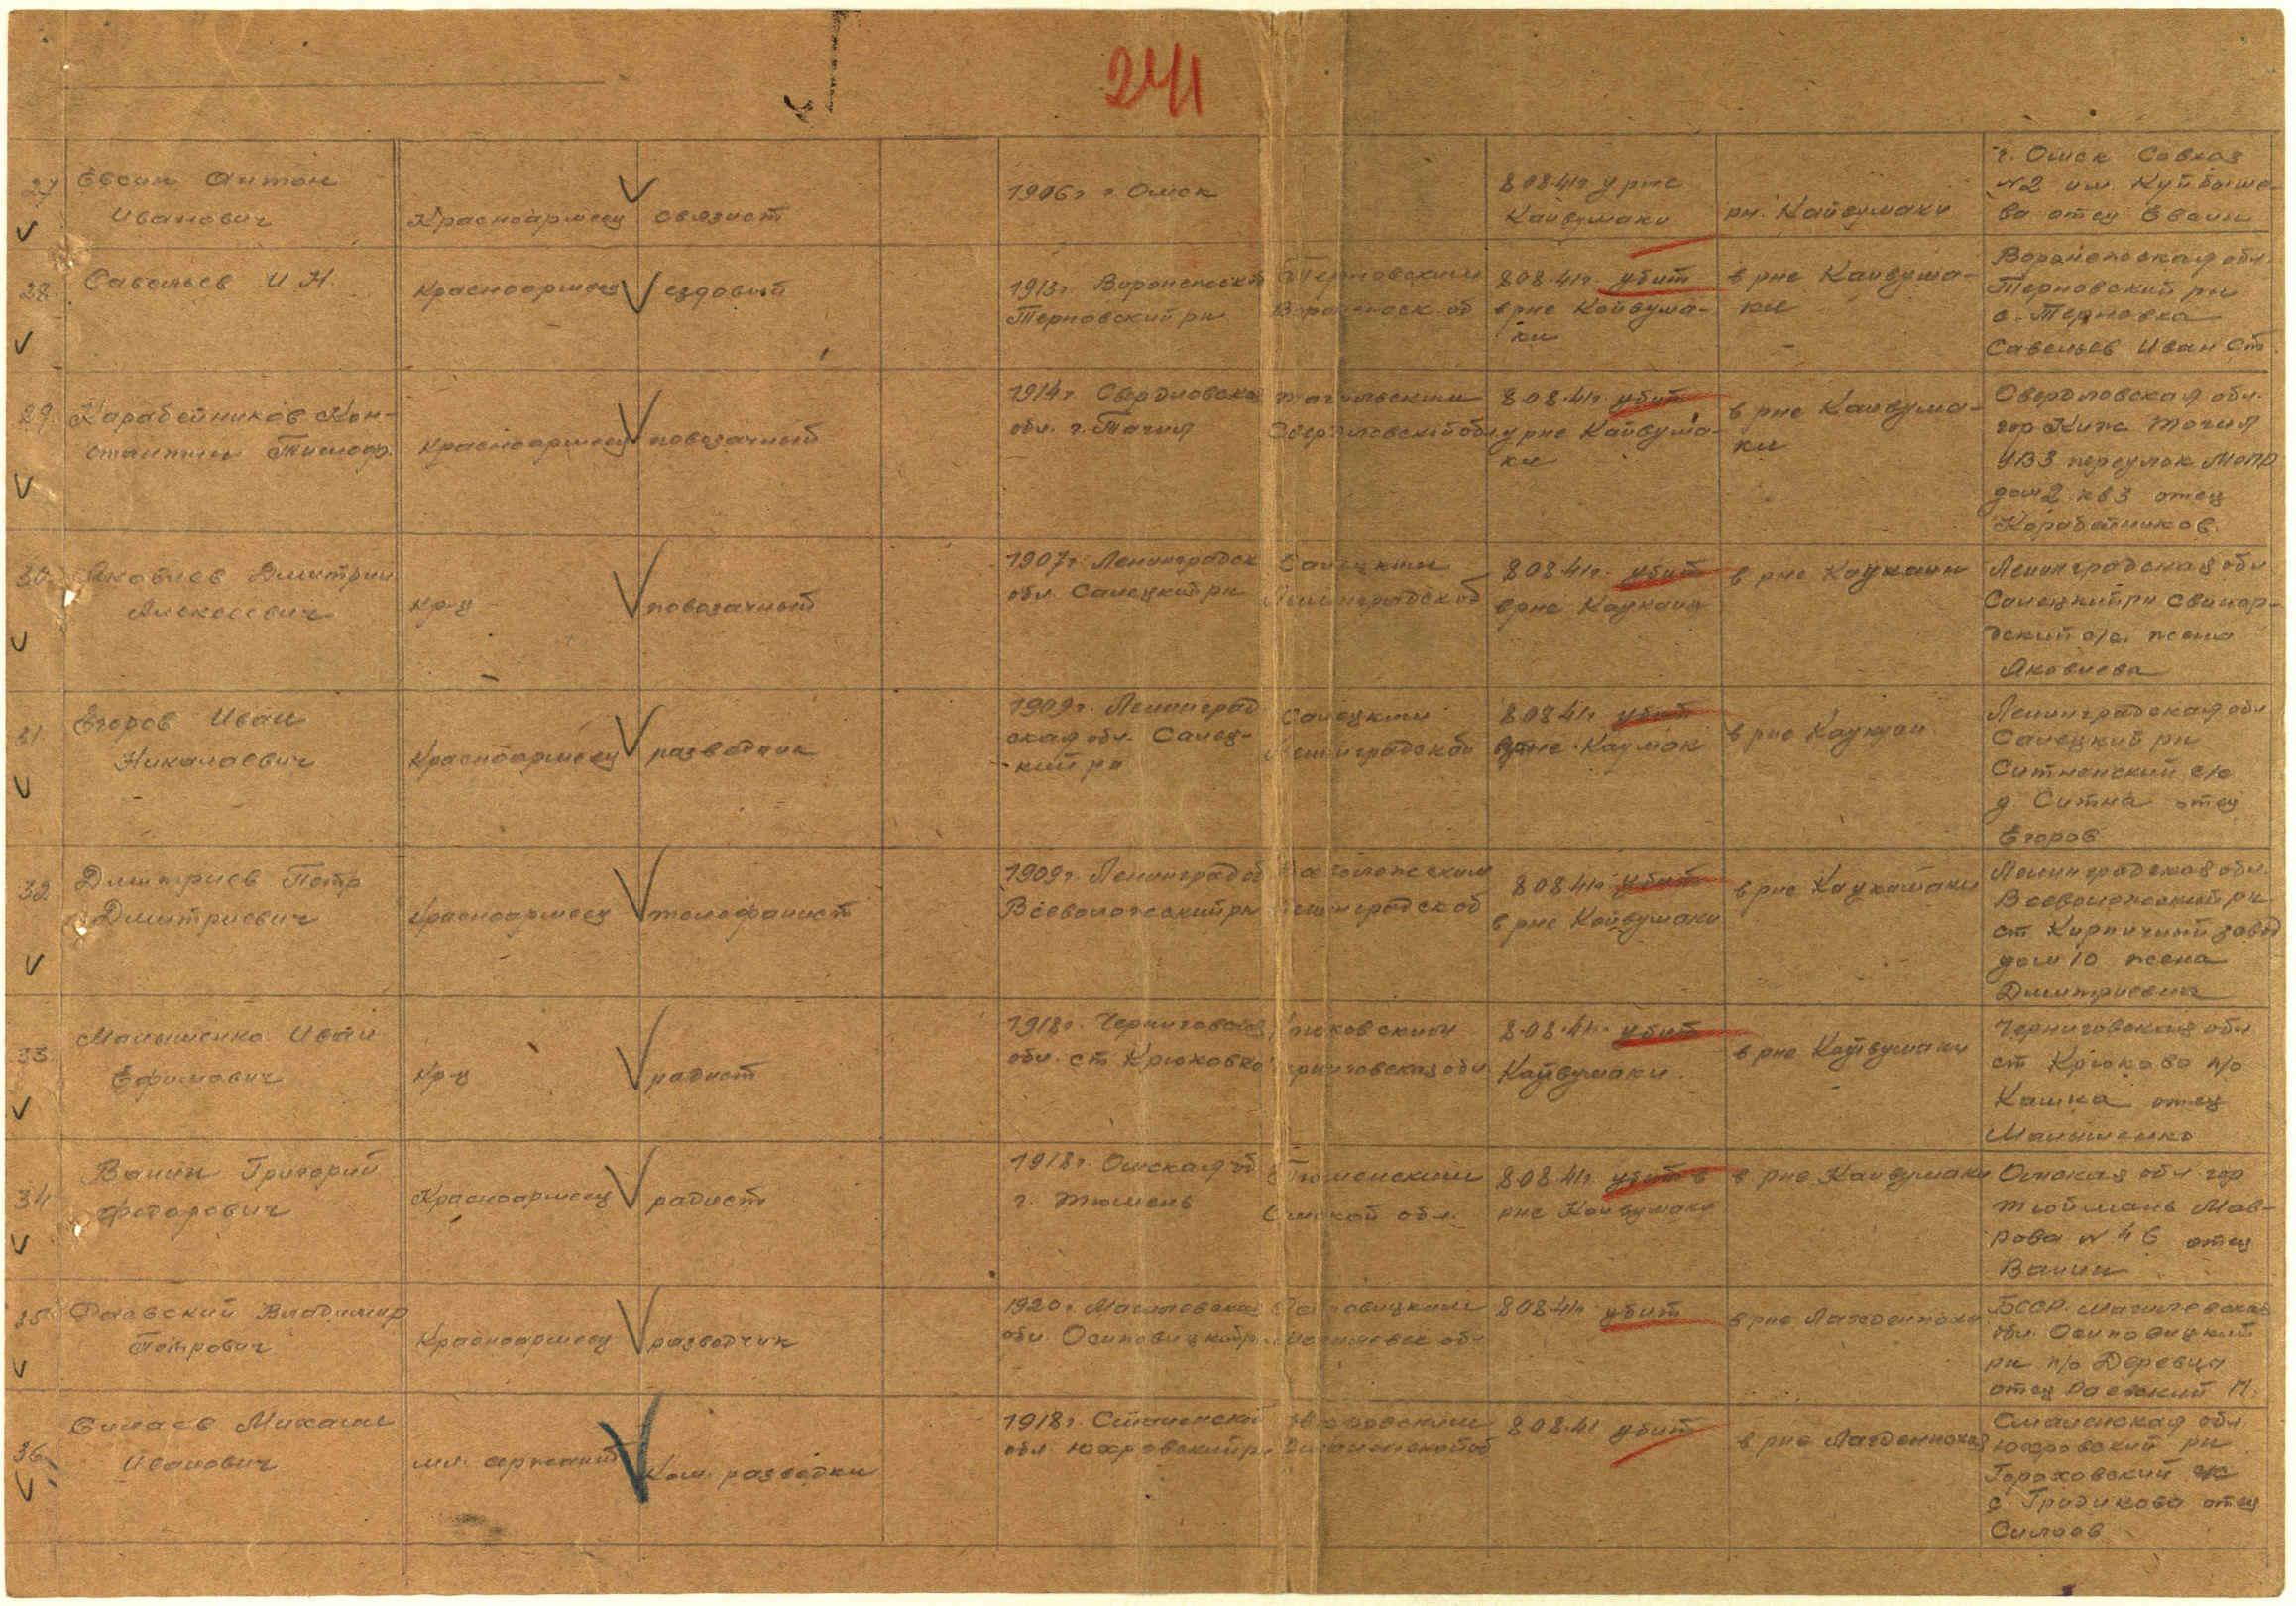 241
27
Евсин Антон
Иванович
Красноармеец
связист
1906 г г Омск
8 08 41г у рне
Кайвумаки
рн. Кайвумаки
г. Омск Совхоз
№2 им. Куйбыше-
ва отец Евсин
28.
Савельев И Н.
Красноармеец
ездовый
1913г. Воронежской
Терновский рн
Терновским
Воронежск об
8 08 41г. убит
в рне Кайвума-
ки
в рне Кайвума-
ки
Воронежская обл.
Терновский рн
с. Терновка
Савельев Иван Ст
29.
Карабейников Кон-
стантин Тимоф.
Красноармеец
повозачный
1914г. Свердловска
обл. г. Тагил
Тагильским
Свердловской обл
8 08 41г. убит
у рне Кайвума-
ки
в рне Кайвума-
ки
Свердловская обл.
гор Ниж Тагил
УВЗ переулок МОПР
дом 2 кв 3 отец
Карабейников.
30.
Яковлев Дмитрий
Алексеевич
кр-ц
повозачный
1907г. Ленинградск
обл. Солецкий рн
Солецким
Ленинградской
8 08 41г. убит
в рне
в рне
Ленинградская обл
Солецкий рн
с/с. жена
Яковлева
31.
Егоров Иван
Николаевич
Красноармеец
разведчик
1909г. Ленинград
ская обл. Солец-
кий рн
Солецким
Ленинградской
8 08 41г. убит
в рне
Ленинградская обл
Солецкий рн
Ситненский с/с
д Ситна отец
Егоров
32.
Дмитриев Петр
Дмитриевич
Красноармеец
телефонист
1909г. Ленинград об
Всеволожский рн
Всеволожским
Ленинградск об
8 08 41г убит
в рне Кайвумаки
в рне
Ленинградская обл.
Всеволожский рн
ст Кирпичный завод
дом 10 жена
33.
Малышенко Иван
Ефимович
кр-ц
радист
1918г. Черниговская
обл. ст Крюковка
Черниговская обл
8.08.41г. убит
Кайвумаки.
в рне Кайвумаки
Черниговская обл
ст Крюково п/о
Кашка отец
Малышенко
34
Ванин Григорий
Федорович
Красноармеец
радист
1918г. Омская об
г. Тюмень
Тюменским
Омской обл.
8 08 41г. убит в
рне Кайвумаки
в рне Кайвумаки
Омская обл гор
Мав-
рова № 46 отец
Ванин
35
Раевский Владимир
Петрович
Красноармеец
разведчик
1920г. Могилевская
обл. Осиповицкий р.
Осиповицким
Могилевск обл
8 08 41г. убит
в рне Лахденпохи
БССР. Могилевская
обл. Осиповицкий
рн п/о Деревца
отец Раевский П.
36.
Силаев Михаил
Иванович
мл. сержант
Ком. разведки
1918г. Смоленской
обл. Юхновский рн
Юхновским
Смоленской об
8 08 41 убит
в рне Лахденпохья
Смоленская обл
Юхновский рн
Гороховский с/с
с. Гридиково отец
Силаев